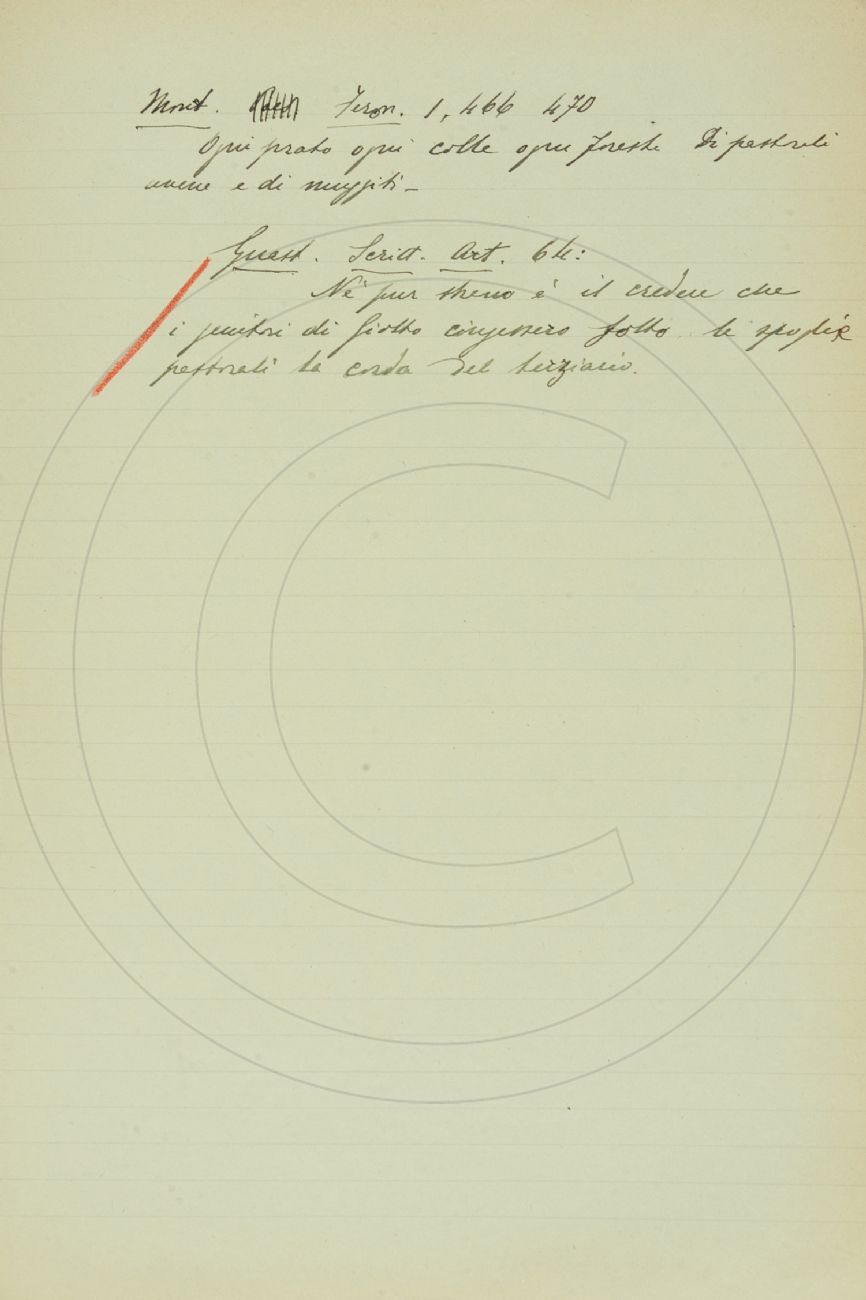 Mont. Feron. 1, 466 470
Ogni prato ogni colle ogni foresta Di pastorali
avene e di muggiti –
Guast. Scritt. Art. 64:
Nè pur strano è il credere che
i genitori di Giotto cingessero sotto le spoglie
pastorali la corda del terziario.